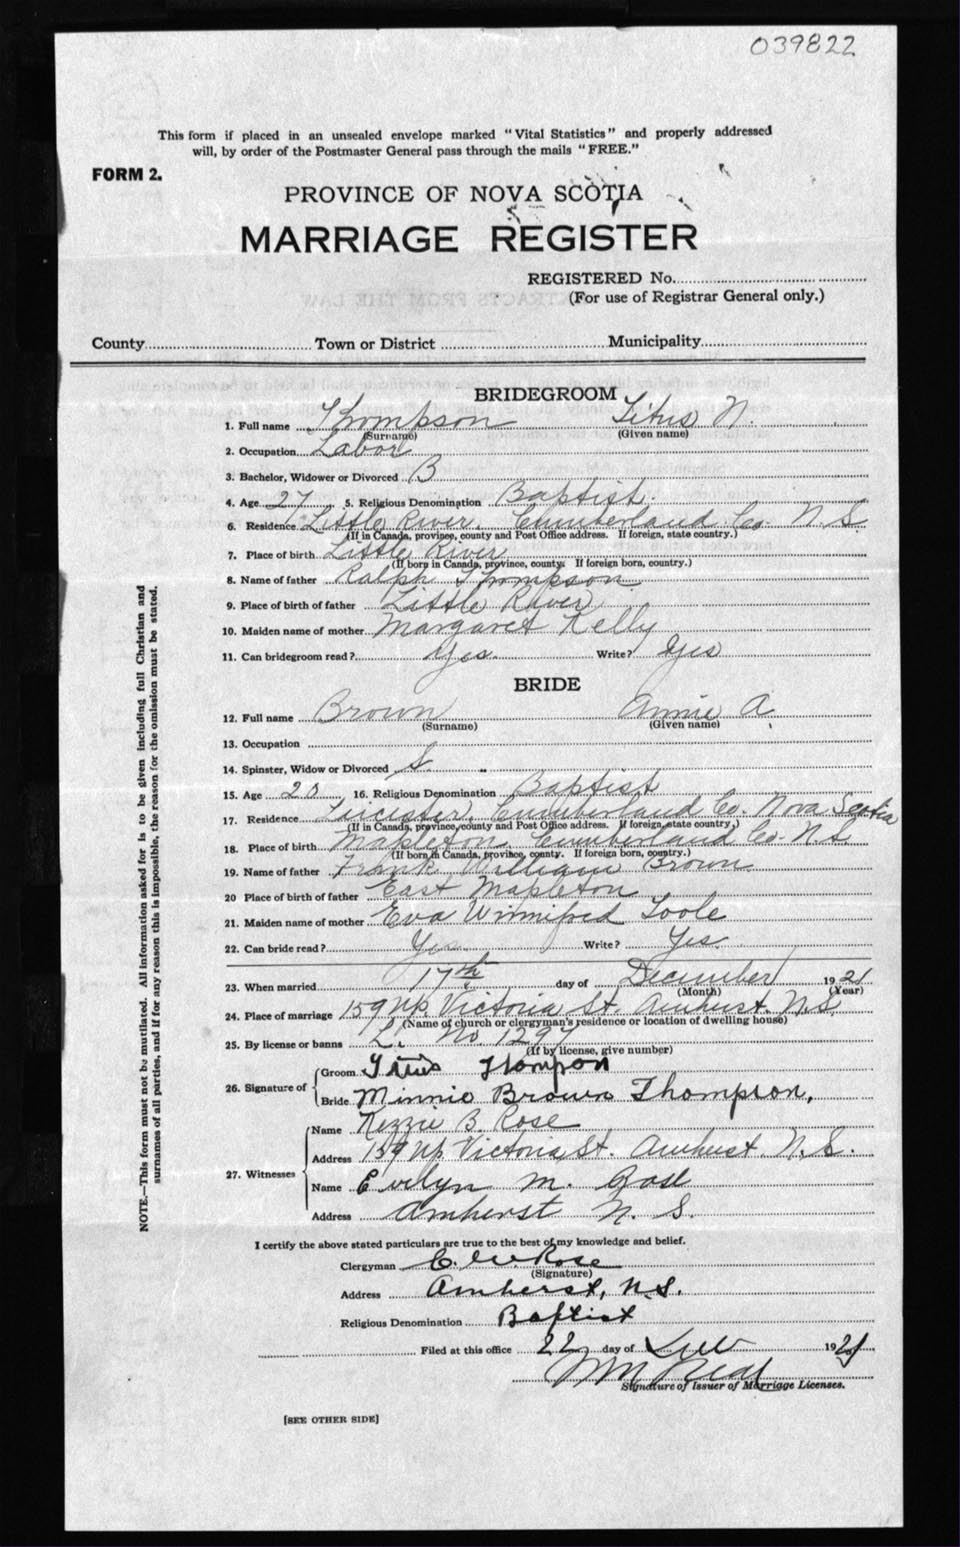 039822
This form if placed in an unsealed envelope marked "Vital Statistics" and properly addressed
will, by order of the Postmaster General pass through the mails "FREE."
FORM 2.
PROVINCE OF NOVA SCOTIA
MARRIAGE REGISTER
REGISTERED No.
(For use of Registrar General only.)
County Town or District Municipality
BRIDEGROOM
1. Full name Thompson Titus N.
(Surname) (Given name)
2. Occupation Labor
3. Bachelor, Widower or Divorced B
4. Age 27 5. Religious Denomination Baptist.
6. Residence Little River. Cumberland Co. N S
(If in Canada, province, county and Post Office address. If foreign, state country.)
7. Place of birth Little River
(If born in Canada, province, county. If foreign born, country.)
8. Name of father Ralph Thompson
9. Place of birth of father Little River
10. Maiden name of mother Margaret Kelly
11. Can bridegroom read? Yes. Write? Yes
BRIDE
12. Full name Brown Annie A
(Surname) (Given name)
13. Occupation
14. Spinster, Widow or Divorced S.
15. Age 20 16. Religious Denomination Baptist
17. Residence Leicester, Cumberland Co. Nova Scotia
(If in Canada, province, county and Post Office address. If foreign, state country.)
18. Place of birth Mapleton, Cumberland Co. N.S.
(If born in Canada, province, county. If foreign born, country.)
19. Name of father Frank William Brown
20 Place of birth of father East Mapleton
21. Maiden name of mother Eva Winnifred Toole
22. Can bride read? Yes Write? Yes.
23. When married 17th day of December 1921
(Month) (Year)
24. Place of marriage 159 Up Victoria St. Amherst. N.S.
(Name of church or clergyman's residence or location of dwelling house)
25. By license or banns L. No. 1297
(If by license, give number)
26. Signature of Groom Titus Thompson
Bride Minnie Brown Thompson,
27. Witnesses Name Kezzie B. Rose
Address 159 Up Victoria St. Amherst. N.S.
Name Evelyn M. Rose
Address Amherst N. S.
I certify the above stated particulars are true to the best of my knowledge and belief.
Clergyman C. W. Rose
(Signature)
Address Amherst, N.S.
Religious Denomination Baptist
Filed at this office 22 day of Dec 1921
Signature of Issuer of Marriage Licenses.
[SEE OTHER SIDE]
NOTE.—This form must not be mutilated. All information asked for is to be given including full Christian and
surnames of all parties, and if for any reason this is impossible, the reason for the omission must be stated.